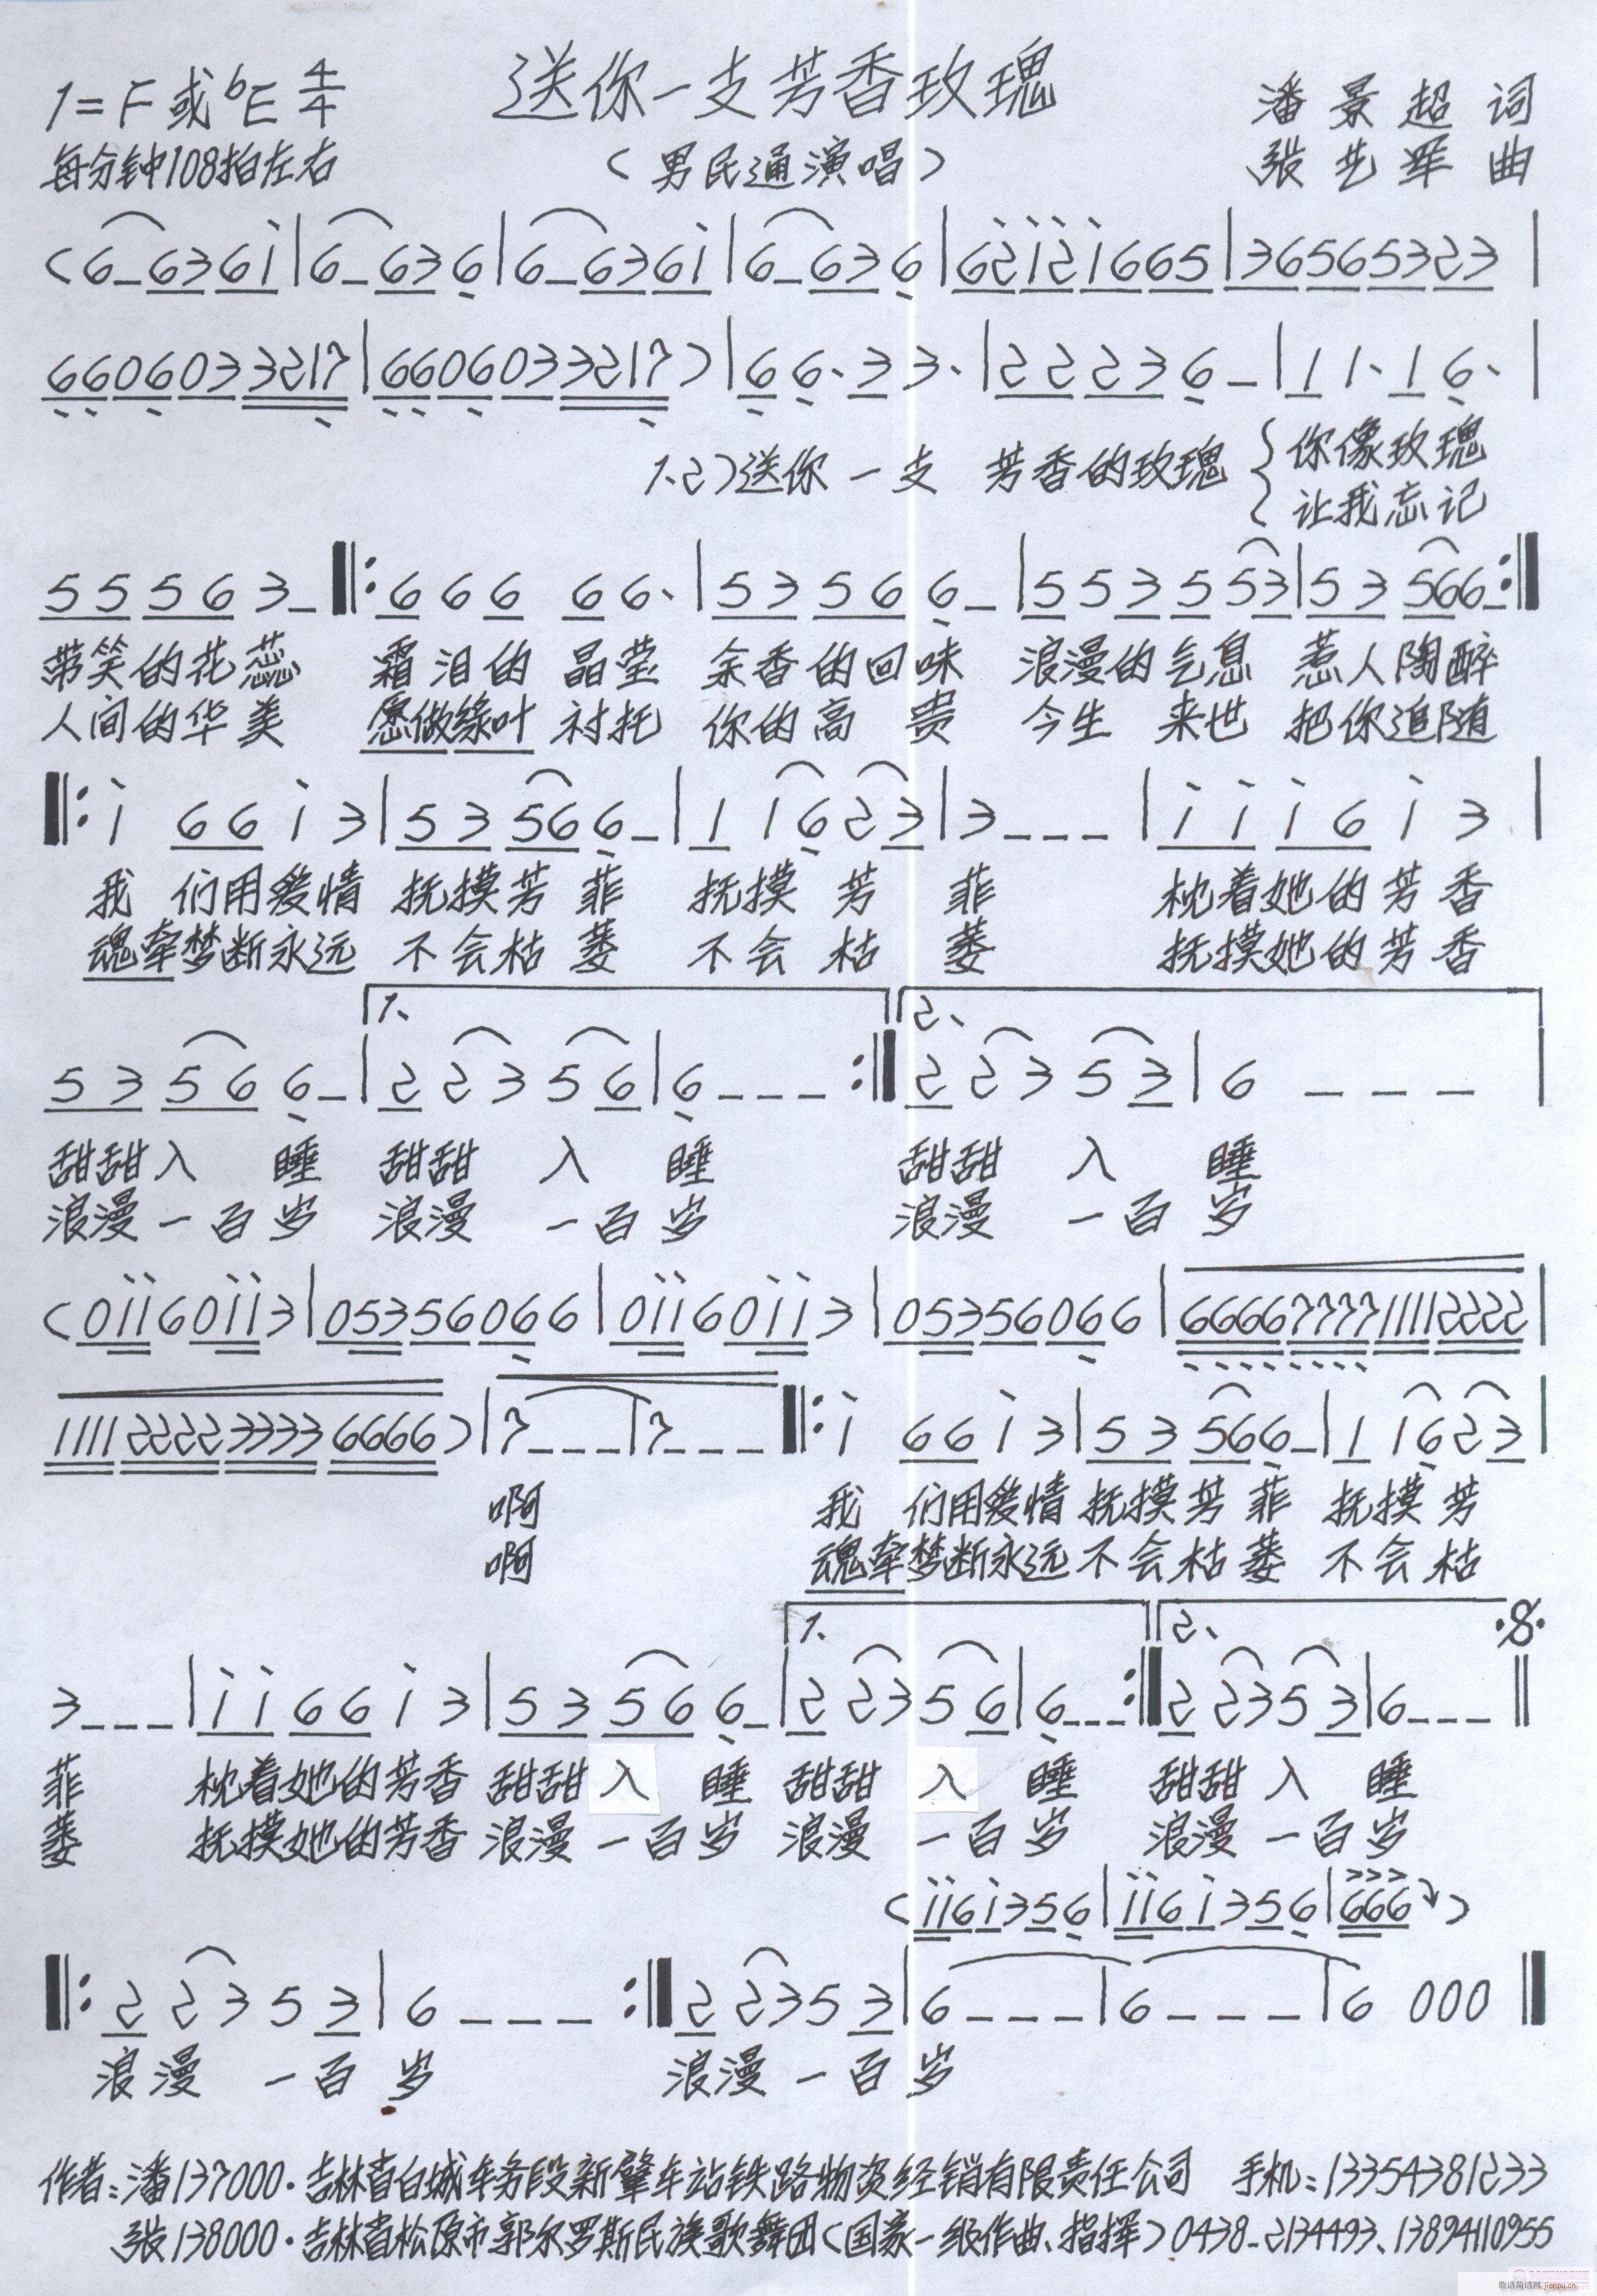 送你一支芳香玫瑰
1=F或bE 4/4
潘景超 词
每分钟108拍左右
(男民通演唱)
张艺军 曲
(6 - 6 3 6 i | 6 - 6 3 6 | 6 - 6 3 6 i | 6 - 6 3 6 | 6 2 i 2 i 6 6 5 | 3 6 5 6 5 3 2 3 |
6 6 0 6 0 3 3 2 1 7 | 6 6 0 6 0 3 3 2 1 7 ) | 6 6、3 3、| 2 2 2 3 6 - | 1 1、1 6、|
1、2)送你一支 芳香的玫瑰 {你像玫瑰
让我忘记
5 5 5 6 3 - ‖: 6 6 6 6 6、| 5 3 5 6 6 - | 5 5 3 5 5 3 | 5 3 5 6 6 - :‖
带笑的花蕊 霜泪的晶莹 余香的回味 浪漫的气息 惹人陶醉
人间的华美 愿做绿叶衬托 你的高贵 今生来世 把你追随
‖: i 6 6 i 3 | 5 3 5 6 6 - | 1 1 6 2 3 | 3 - - - | i i i 6 i 3 |
我们用爱情 抚摸芳菲 抚摸芳菲 枕着她的芳香
魂牵梦断永远 不会枯萎 不会枯萎 抚摸她的芳香
1、 2、
5 3 5 6 6 - | 2 2 3 5 6 | 6 - - - :‖ 2 2 3 5 3 | 6 - - - |
甜甜入睡 甜甜入睡 甜甜入睡
浪漫一百岁 浪漫一百岁 浪漫一百岁
(0 i i 6 0 i i 3 | 0 5 3 5 6 0 6 6 | 0 i i 6 0 i i 3 | 0 5 3 5 6 0 6 6 | 6 6 6 6 7 7 7 7 1 1 1 1 2 2 2 2 |
1 1 1 1 2 2 2 2 3 3 3 3 6 6 6 6 ) | 7 - - - | 7 - - - ‖: i 6 6 i 3 | 5 3 5 6 6 - | 1 1 6 2 3 |
啊 我们用爱情 抚摸芳菲 抚摸芳
啊 魂牵梦断永远 不会枯萎 不会枯
1、 2、
3 - - - | i i 6 6 i 3 | 5 3 5 6 6 - | 2 2 3 5 6 | 6 - - - :‖ 2 2 3 5 3 | 6 - - - ‖
菲 枕着她的芳香 甜甜入睡 甜甜入睡 甜甜入睡
萎 抚摸她的芳香 浪漫一百岁 浪漫一百岁 浪漫一百岁
(i i 6 i 3 5 6 | i i 6 i 3 5 6 | 6 6 6 )
‖: 2 2 3 5 3 | 6 - - - :‖ 2 2 3 5 3 | 6 - - - | 6 - - - | 6 0 0 0 ‖
浪漫一百岁 浪漫一百岁
作者:潘137000·吉林省白城车务段新肇车站铁路物资经销有限责任公司 手机:13354381233
张138000·吉林省松原市郭尔罗斯民族歌舞团(国家一级作曲、指挥)0438-2134493、13894110955
歌谱简谱网 jianpu.cn